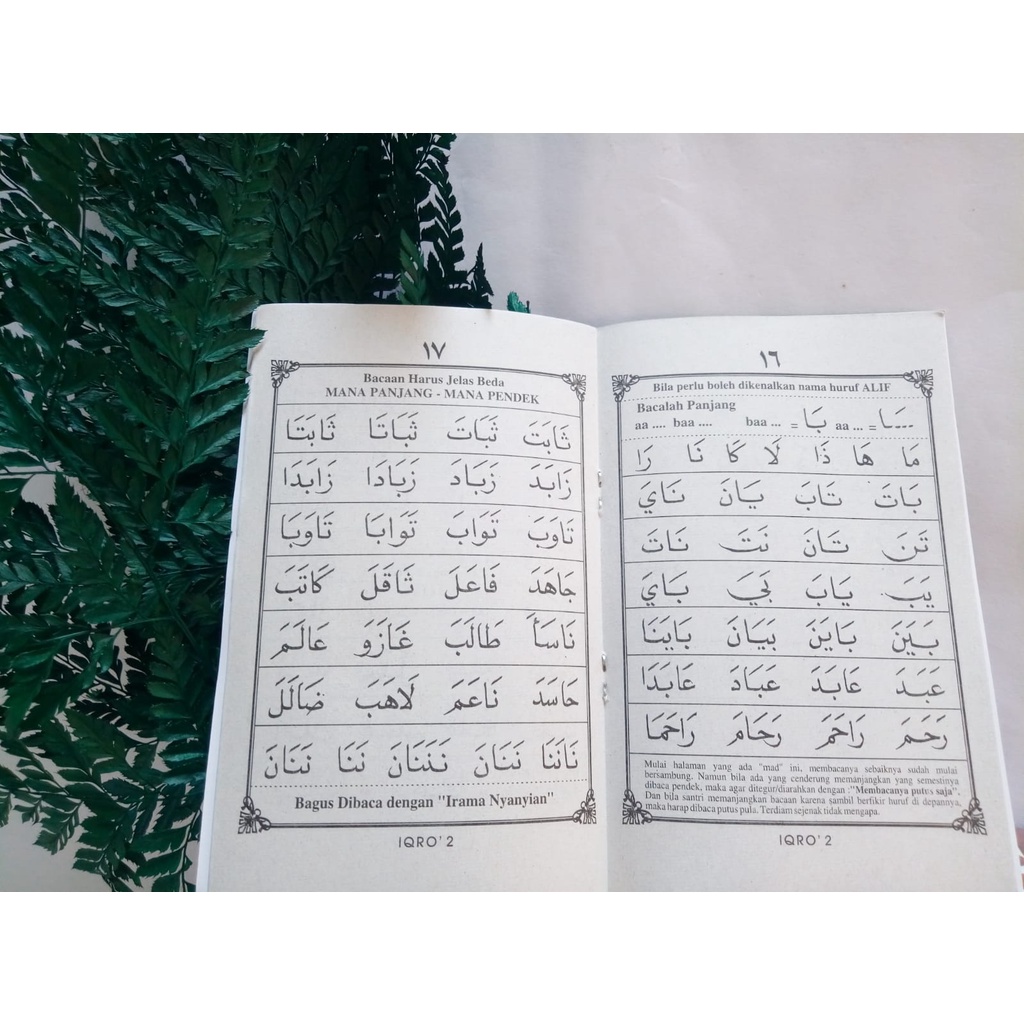 ١٦
Bila perlu boleh dikenalkan nama huruf ALIF
Bacalah Panjang
ـَـا = aa ... بَا = baa ... aa .... baa ....
مَا هَا ذَا لَا كَا نَا رَا
بَاتَ تَابَ يَانَ نَايَ
تَنَ تَانَ نَتَ نَاتَ
يَبَ يَابَ بَيَ بَايَ
بَيَنَ بَايَنَ بَيَانَ بَايَنَا
عَبَدَ عَابَدَ عَبَادَ عَابَدَا
رَحَمَ رَاحَمَ رَحَامَ رَاحَمَا
Mulai halaman yang ada "mad" ini, membacanya sebaiknya sudah mulai
bersambung. Namun bila ada yang cenderung memanjangkan yang semestinya
dibaca pendek, maka agar ditegur/diarahkan dengan :"Membacanya putus saja".
Dan bila santri memanjangkan bacaan karena sambil berfikir huruf di depannya,
maka harap dibaca putus pula. Terdiam sejenak tidak mengapa.
IQRO' 2
١٧
Bacaan Harus Jelas Beda
MANA PANJANG - MANA PENDEK
ثَابَتَ ثَبَاتَ ثَبَاتَا ثَابَتَا
زَابَدَ زَبَادَ زَبَادَا زَابَدَا
تَاوَبَ تَوَابَ تَوَابَا تَاوَبَا
جَاهَدَ فَاعَلَ ثَاقَلَ كَاتَبَ
نَاسَأَ طَالَبَ غَازَوَ عَالَمَ
حَاسَدَ نَاعَمَ لَاهَبَ ضَالَلَ
نَانَنَا نَنَانَ نَنَنَانَ نَنَا نَنَانَ
Bagus Dibaca dengan "Irama Nyanyian"
IQRO' 2